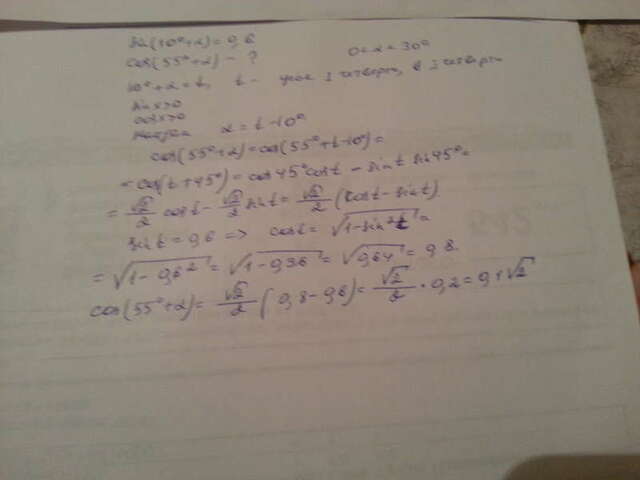 sin(10°+α)=0,6
cos(55°+α) - ? 0<α<30°
10°+α=t, t - угол 1 четверти, в 1 четверти
sin x>0
cos x>0
α=t-10°
cos(55°+α)=cos(55°+t-10°)=
=cos(t+45°)=cos45°cost - sint sin45°=
=√2/2 cost - √2/2 sint = √2/2 (cost - sint)
sint=0,6 => cost=√1-sin²t =
=√1-0,6² =√1-0,36 =√0,64 =0,8
cos(55°+α)= √2/2 (0,8-0,6)= √2/2 · 0,2=0,1√2